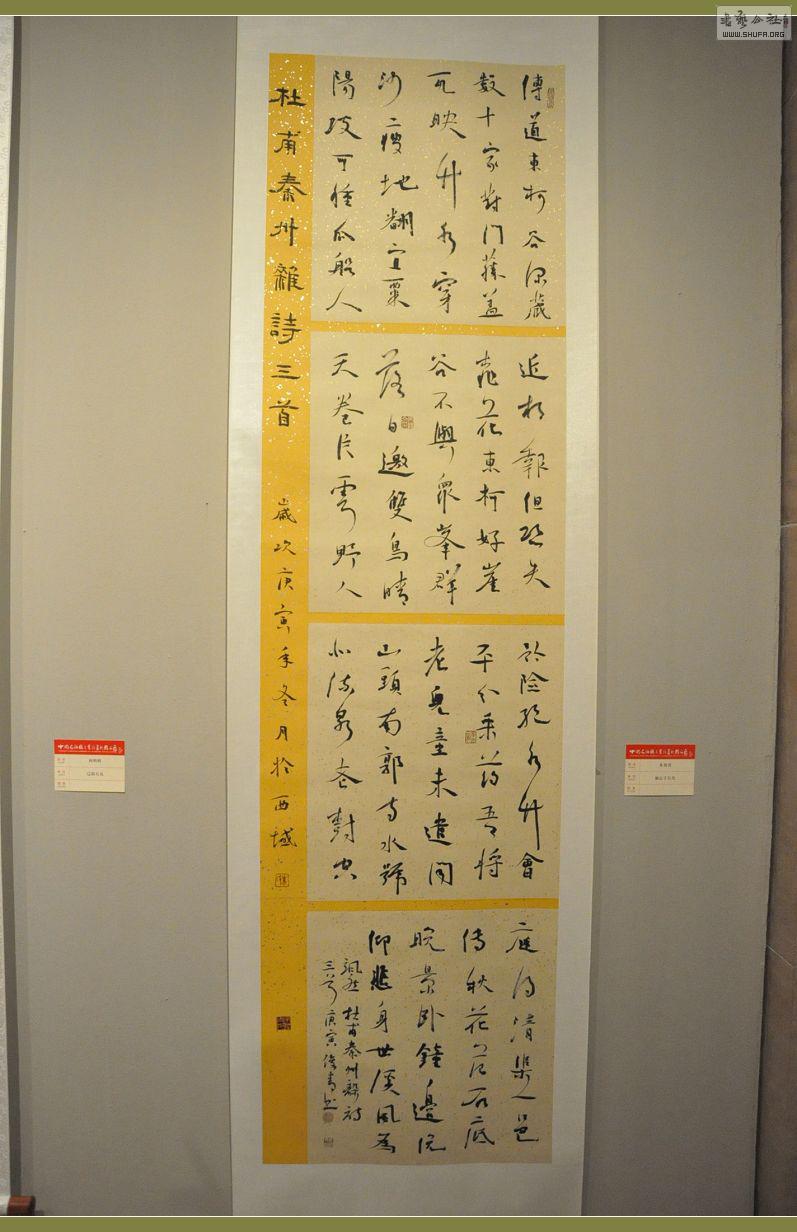 杜甫秦州雜詩三首
歲次庚寅年冬月於西域
傳道東柯谷深藏
數十家對門藤蓋
瓦映竹水穿
沙瘦地翻宜粟
陽坡可種瓜船人
近相報但恐失
桃花東柯好崖
谷不與眾峯群
落日邀雙鳥晴
天卷片雲野人
矜險絕水竹會
平分采藥吾將
老兒童未遣聞
山頭南郭寺水號
北流泉老樹空
庭得清渠一邑
傳秋花危石底
晚景臥鐘邊俛
仰悲身世溪風為
颯然 杜甫秦州雜詩
三首 庚寅
WWW.SHUFA.ORG